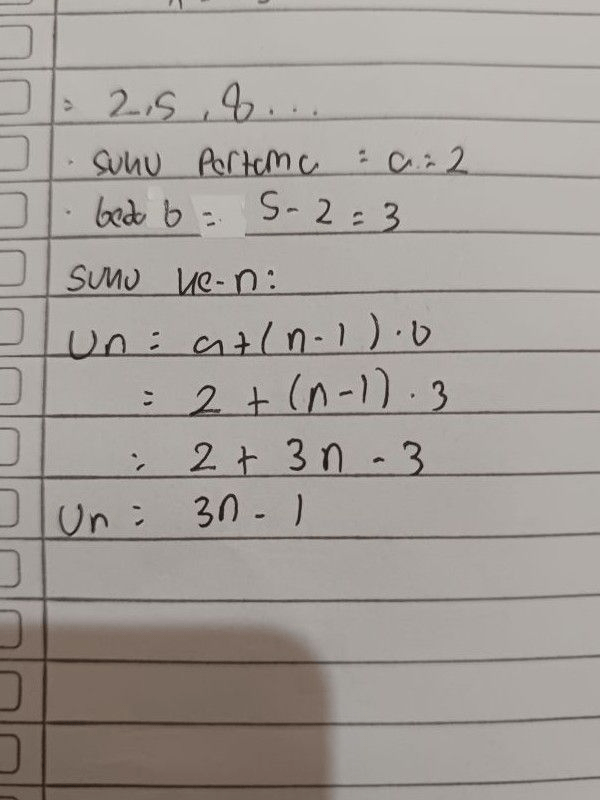 = 2,5,8...
· suku Pertama = a = 2
· beda b = 5-2 = 3
suku ke-n:
Un = a+(n-1).b
= 2 + (n-1) . 3
= 2 + 3n - 3
Un = 3n - 1